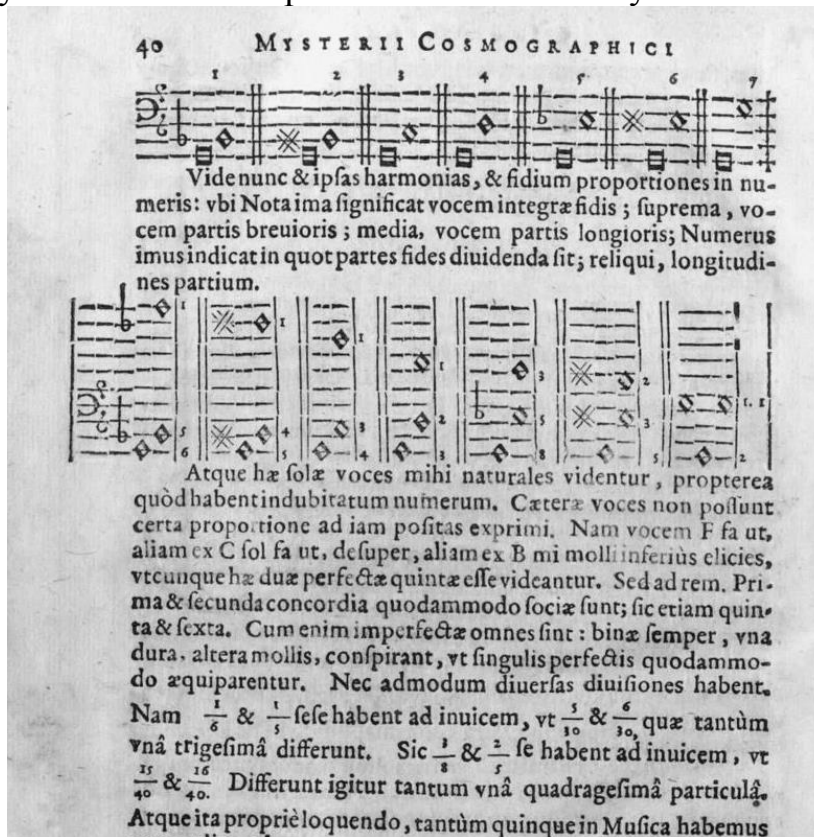 40 MYSTERII COSMOGRAPHICI
1 2 3 4 5 6 7
Vide nunc & ipſas harmonias, & fidium proportiones in nu-
meris: vbi Nota ima ſignificat vocem integræ fidis; ſuprema, vo-
cem partis breuioris; media, vocem partis longioris; Numerus
imus indicat in quot partes fides diuidenda ſit; reliqui, longitudi-
nes partium.
1 1 1 1 3 2 1. 1
5 4 3 2 5 3
6 5 4 3 8 5 2
Atque hæ ſolæ voces mihi naturales videntur, propterea
quòd habent indubitatum numerum. Cæteræ voces non poſſunt
certa proportione ad iam poſitas exprimi. Nam vocem F fa ut,
aliam ex C ſol fa ut, deſuper, aliam ex B mi molli inferiùs elicies,
vtcunque hæ duæ perfectæ quintæ eſſe videantur. Sed ad rem. Pri-
ma & ſecunda concordia quodammodo ſociæ ſunt; ſic etiam quin-
ta & ſexta. Cum enim imperfectæ omnes ſint: binæ ſemper, vna
dura, altera mollis, conſpirant, vt ſingulis perfectis quodammo-
do æquiparentur. Nec admodum diuerſas diuiſiones habent.
Nam 1/6 & 1/5 ſeſe habent ad inuicem, vt 5/30 & 6/30, quæ tantùm
vnâ trigeſimâ differunt. Sic 3/8 & 2/5 ſe habent ad inuicem, vt
15/40 & 16/40. Differunt igitur tantum vnâ quadrageſimâ particulâ.
Atque ita propriè loquendo, tantùm quinque in Muſica habemus